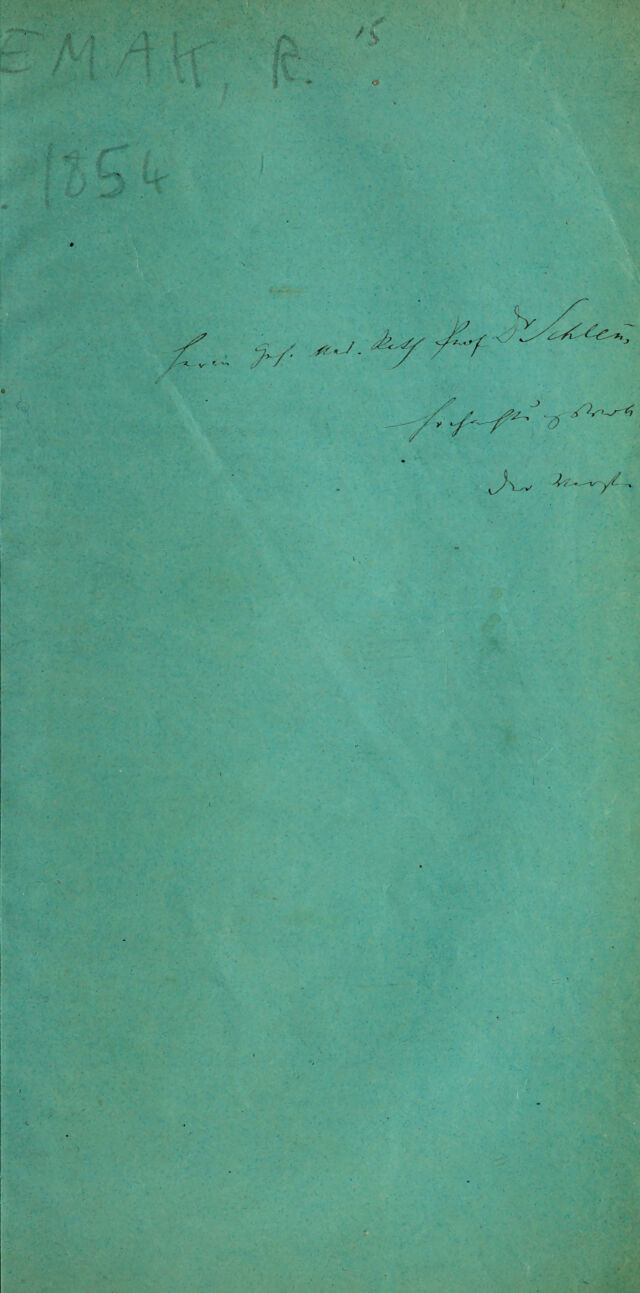 EMAK, R. 15
. 1854
Herrn Geh. Med. Rath Prof Dr Schlem
hochachtungsvoll
der Verf.